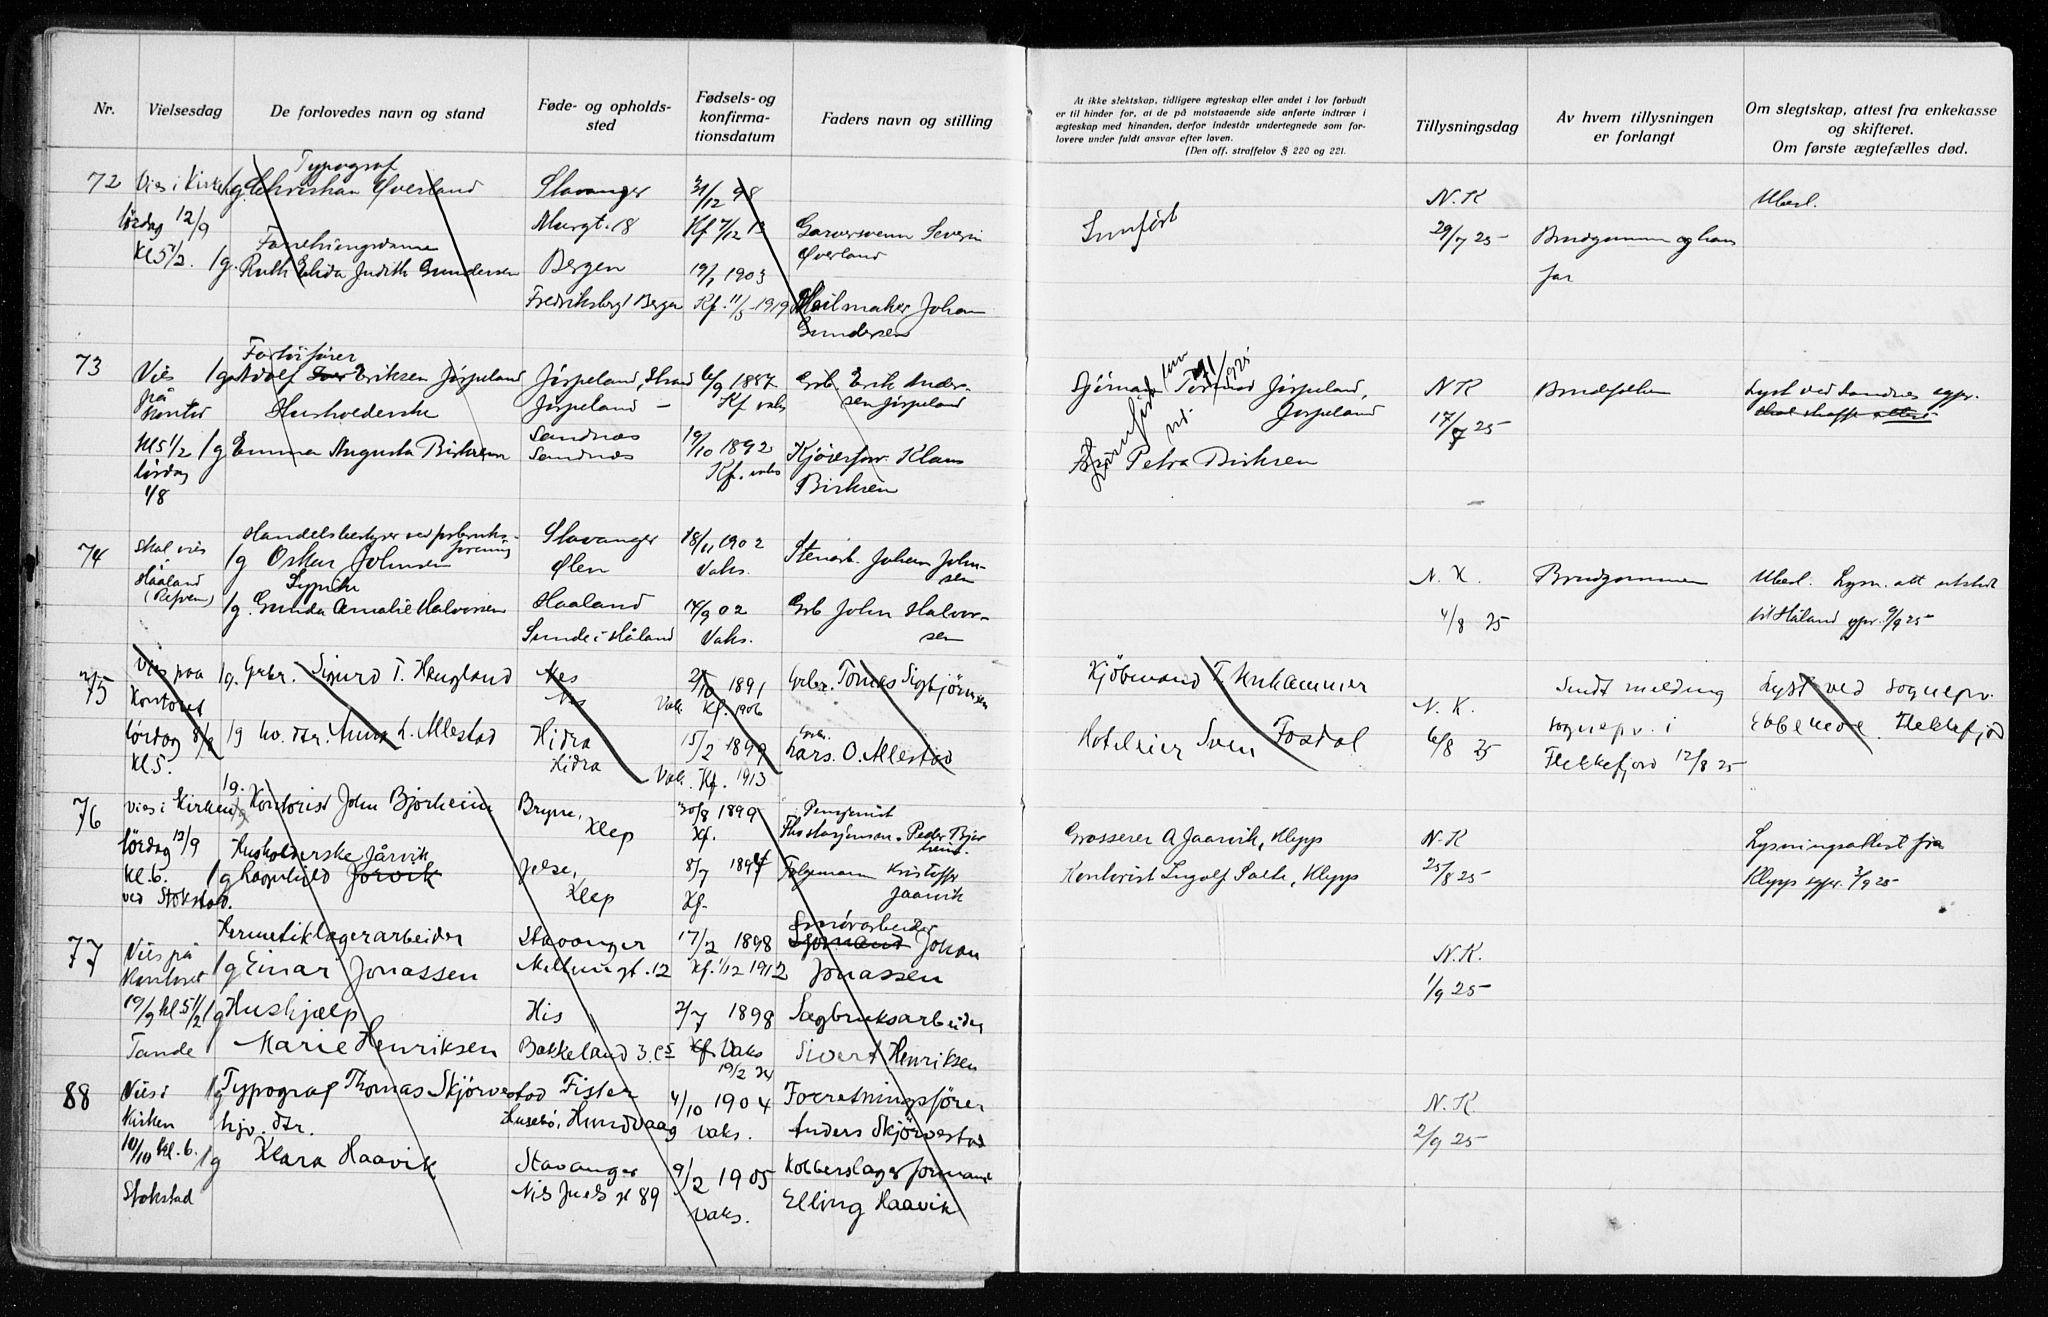 Nr.
Vielsesdag
De forlovedes navn og stand
Føde- og opholds-
sted
Fødsels- og
konfirma-
tionsdatum
Faders navn og stilling
At ikke slektskap, tidligere ægteskap eller andet i lov forbudt
er til hinder for, at de på motstaaende side anførte indtrær i
ægteskap med hinanden, derfor indestår undertegnede som for-
lovere under fuldt ansvar efter loven.
(Den off. straffelov § 220 og 221.
Tillysningsdag
Av hvem tillysningen
er forlangt
Om slegtskap, attest fra enkekasse
og skifteret.
Om første ægtefælles død.
72
Vies i Kirken
lørdag 12/9
Kl 5 1/2.
Typograf
1/g. Christian Øverland
1/g. Ruth Elida Judith Gundersen
Stavanger
Murgt. 18
Bergen
Fredriksbergt Bergen
31/12 98
Kf 7/12 13
19/1 1903
Kf. 11/5 1919
Garversvenn Severin
Øverland
Seilmaker Johan
Gundersen
N.K
29/7 25
Brudgommen og hans
far
Ubesl.
73
Vies
på
kontor
Kl 5 1/2
lørdag
1/8
Forfører
1/g Adolf Eriksen Jørpeland
Husholderske
1/g Emma Augusta Birksen
Jørpeland, Strand
Jørpeland
Sandnæs
Sandnæs
6/9 1887
Kf vaks
19/10 1892
Kf. vaks
Grb. Erik Ander-
sen Jørpeland
Klaus
Birksen
Tormod Jørpeland,
Jørpeland
Petra Birksen
N K
17/7 25
Brudfolken
Lyst ved Sandnes sgpr.
74
Skal vies
i
Haaland
(Refven)
1/g Oskar Johnsen
Sypike
1/g. Gunda Amalie Halvorsen
Stavanger
Ølen
Haaland
Sunde i Håland
18/11 1902
Vaks.
14/9 02
Vaks.
Stenarb. Johan John-
sen
Grb John Halvor-
sen
N. K.
4/8 25
Brudgommen
Ubesl. Lysn. att utstedt
til Håland sgpr. 9/9 25
75
Vies paa
Kontoret
lørdag 8/8
Kl 5.
1/g. Grbr. Sigurd T. Haugland
1/g hv. dtr. Anna L. Allestad
Nes
Nes
Hidra
Hidra
2/10 1891
Vak. Kf. 1906
15/2 1899
Vak. Kf. 1913
Grbr. Tomas Sigbjørnsen
Grbr.
Lars. O. Allestad
Kjøbmand T. Unhammer
Hoteleier Sven Fosdal
N. K.
6/8 25
Sendt melding
sognepr. i
Flekkefjord 12/8 25
Lyst ved sognepr.
Ebbenede. Flekkefjord
76
Vies i Kirken
lørdag 12/9
Kl. 6.
ved Stokstad.
1/g. Kontorist John Bjorheim
Husholderske Jårvik
1/g Ragnhild Jørvik
Bryne,
Klep
Jelse,
Klep
30/8 1899
Kf.
8/7 1894
Kf.
Pensjonist
Peder Bjor
heim
Kristoffer
Jaarvik
Grosserer A Jaarvik, Klepp
Kontorist Ingolf Salte, Klepp
N.K
25/8 25
Lysningsattest fra
Klepp sgpr. 3/9 25
77
Vies på
Kontoret
19/9 kl 5 1/2
Tande
Hermetiklagerarbeider
1/g Einar Jonassen
1/g Hushjælp
Marie Henriksen
Stavanger
Mellumgt. 12
His
Bakkeland 3. es
17/2 1898
Kf. 1/12 1912
2/7 1898
Kf. Vaks
Smørarbeider
Sjømand Johan
Jonassen
Sagbruksarbeider
Sivert Henriksen
N.K.
1/9 25
88
Vies i
Kirken
10/10 kl. 6.
Stokstad
1/g Typograf Thomas Skjørvestad
hjv. dtr.
1/g Klara Haavik
Fister
Husebø, Hundvaag
Stavanger
Nils Juels gt 89
4/10 1904
vaks.
9/2 1905
vaks.
Forretningsfører
Anders Skjørvestad
Kobberslagerformand
Elling Haavik
N. K
2/9 25